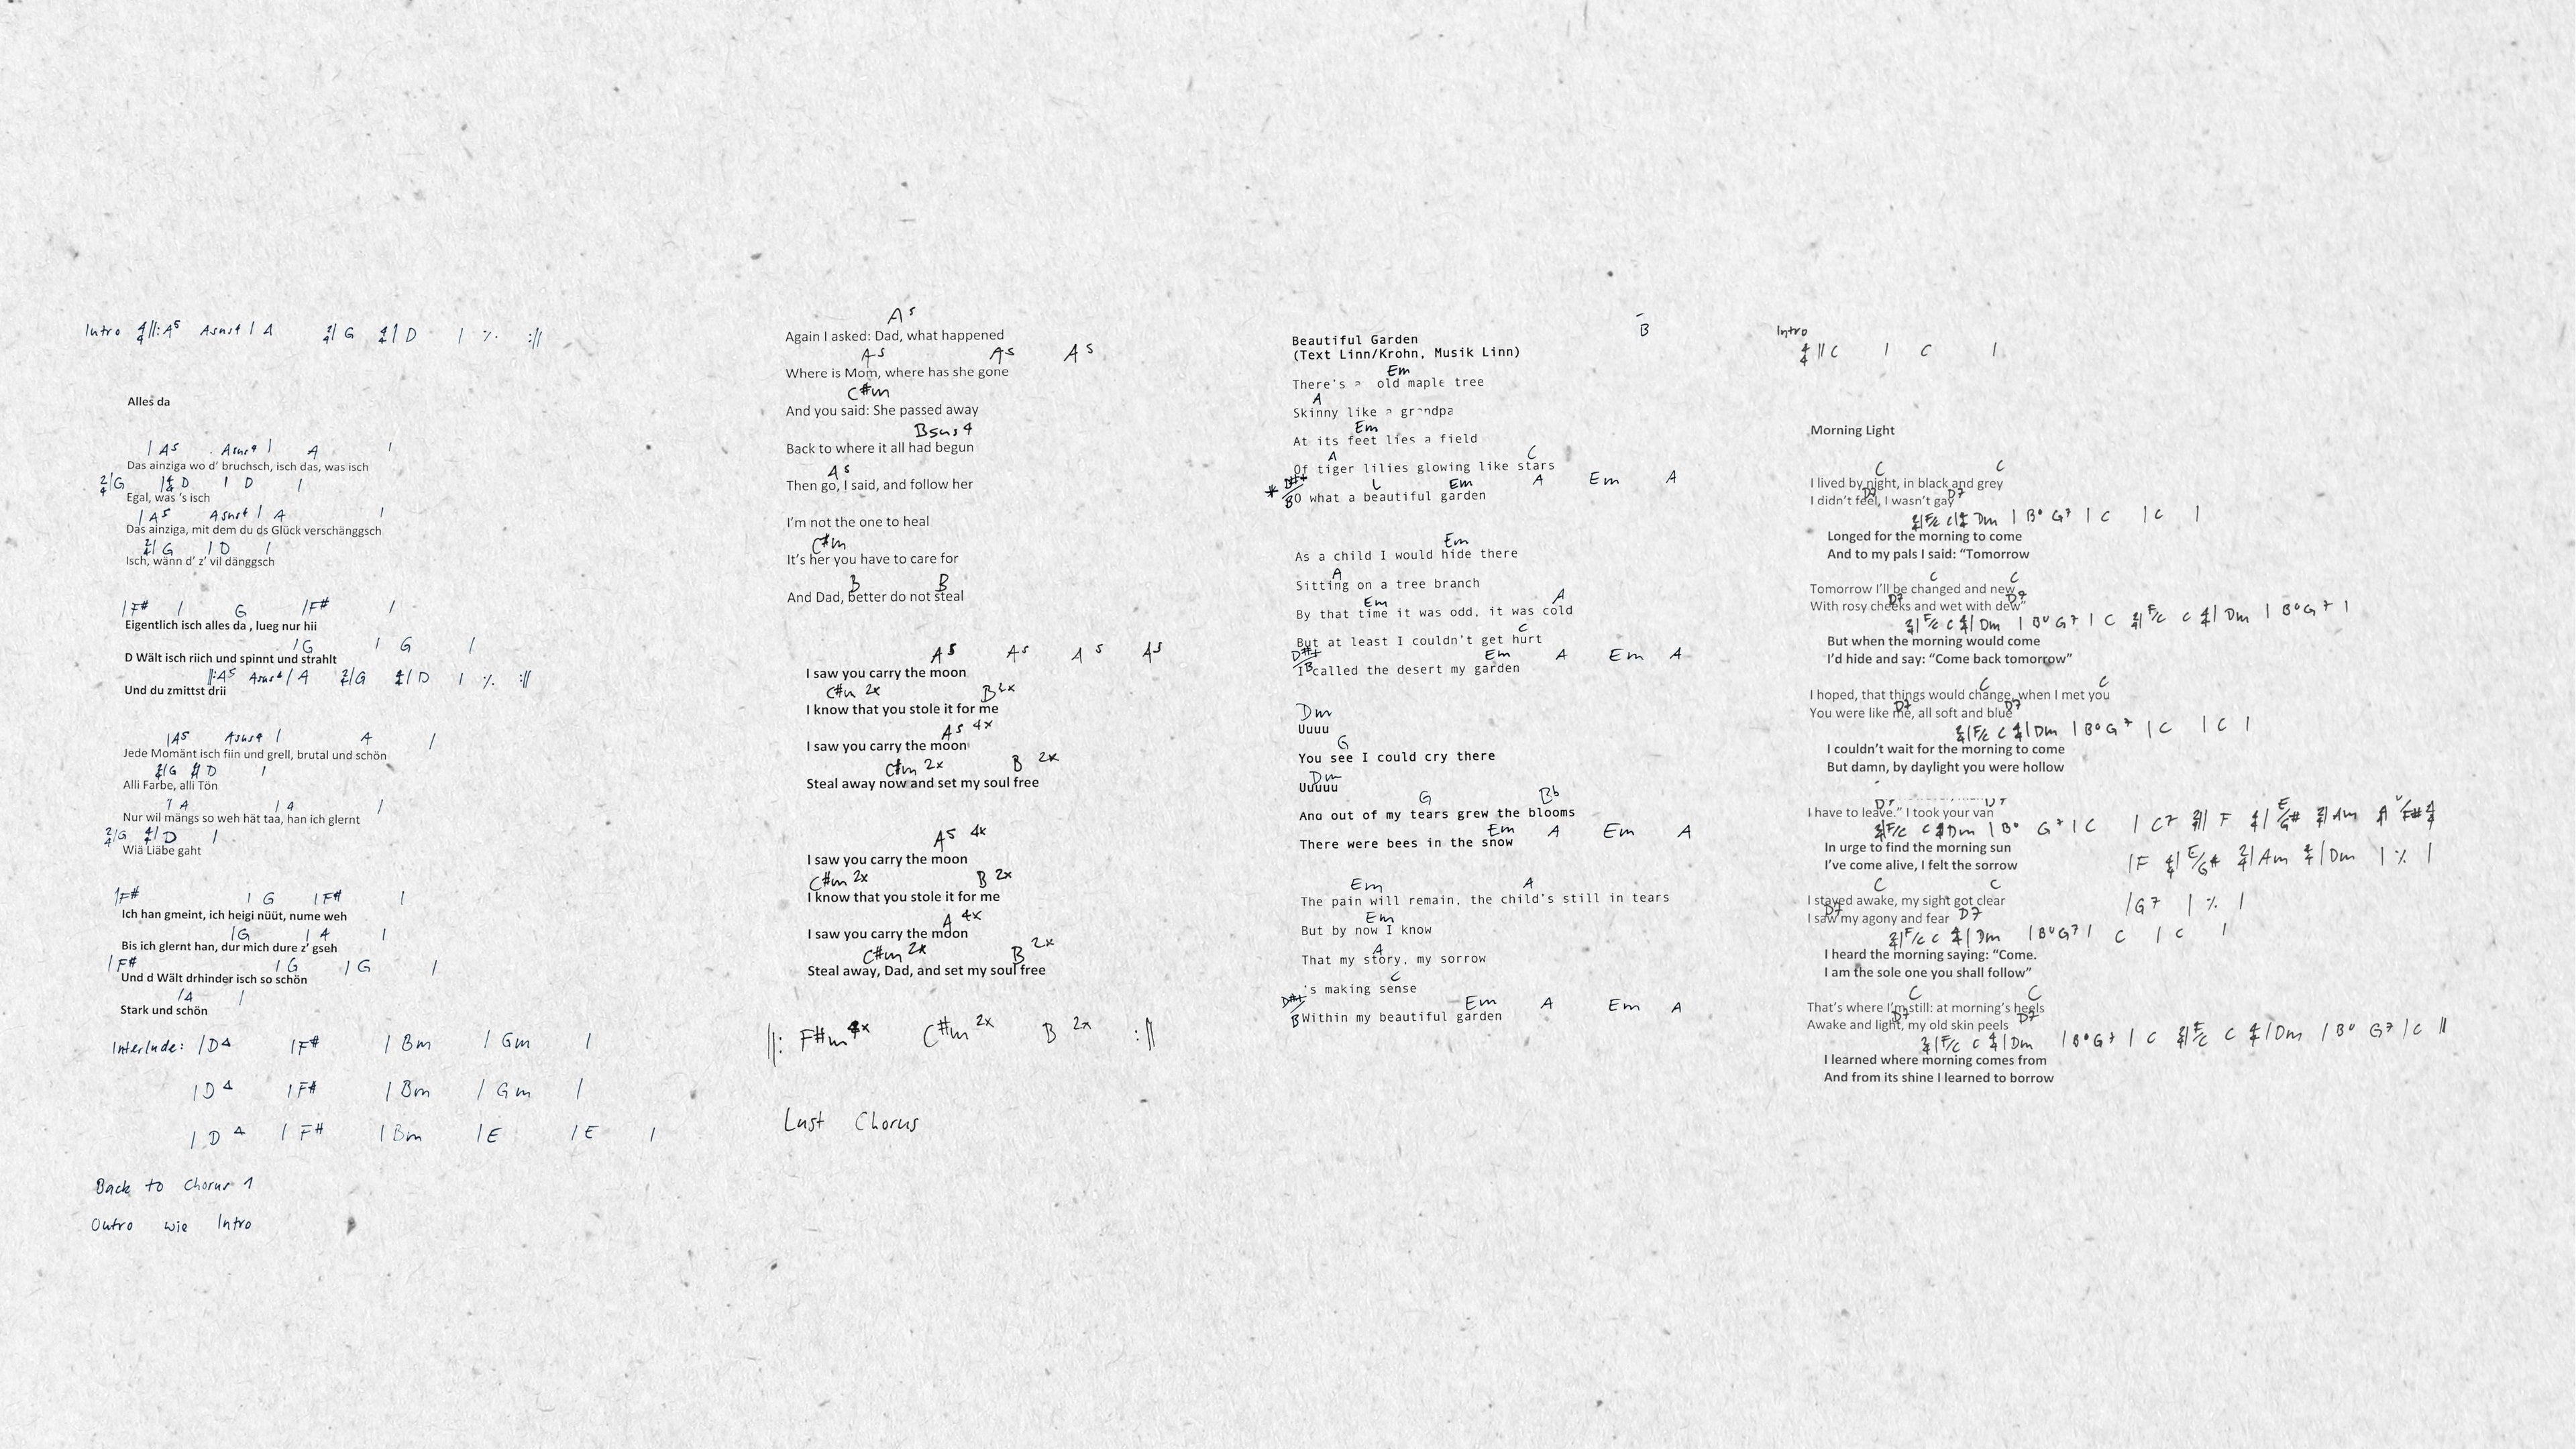 Intro 4/4 ||: A5 Asus4 | A 2/4 | G 4/4 | D | ٪ :||
Alles da
| A5 Asus4 | A |
Das ainziga wo d’ bruchsch, isch das, was isch
2/4 | G | 4/4 D | D |
Egal, was ’s isch
| A5 Asus4 | A |
Das ainziga, mit dem du ds Glück verschänggsch
2/4 | G | D |
Isch, wänn d’ z’ vil dänggsch
| F# | G | F# |
Eigentlich isch alles da , lueg nur hii
| G | G |
D Wält isch riich und spinnt und strahlt
||: A5 Asus4 | A 2/4 | G 4/4 | D | ٪ :||
Und du zmittst drii
| A5 Asus4 | A |
Jede Momänt isch fiin und grell, brutal und schön
2/4 | G 4/4 | D |
Alli Farbe, alli Tön
| A | A |
Nur wil mängs so weh hät taa, han ich glernt
2/4 | G 4/4 | D |
Wiä Liäbe gaht
| F# | G | F# |
Ich han gmeint, ich heigi nüüt, nume weh
| G | A |
Bis ich glernt han, dur mich dure z’ gseh
| F# | G | G |
Und d Wält drhinder isch so schön
| A |
Stark und schön
Interlude: | D∆ | F# | Bm | Gm |
| D∆ | F# | Bm | Gm |
| D∆ | F# | Bm | E | E |
Back to Chorus 1
Outro wie Intro
A5
Again I asked: Dad, what happened
A5 A5 A5
Where is Mom, where has she gone
C#m
And you said: She passed away
Bsus4
Back to where it all had begun
A5
Then go, I said, and follow her
I’m not the one to heal
C#m
It’s her you have to care for
B B
And Dad, better do not steal
A5 A5 A5 A5
I saw you carry the moon
C#m 2x B 2x
I know that you stole it for me
A5 4x
I saw you carry the moon
C#m 2x B 2x
Steal away now and set my soul free
A5 4x
I saw you carry the moon
C#m 2x B 2x
I know that you stole it for me
A 4x
I saw you carry the moon
C#m 2x B 2x
Steal away, Dad, and set my soul free
||: F#m 4x C#m 2x B 2x :||
Last Chorus
B
Beautiful Garden
(Text Linn/Krohn, Musik Linn)
Em
There's a old maple tree
A
Skinny like a grandpa
Em
At its feet lies a field
A C
Of tiger lilies glowing like stars
Em A Em A
O what a beautiful garden
Em
As a child I would hide there
A
Sitting on a tree branch
Em A
By that time it was odd, it was cold
C
But at least I couldn't get hurt
Em A Em A
I called the desert my garden
Dm
Uuuu
G
You see I could cry there
Dm
Uuuuu
G Bb
And out of my tears grew the blooms
Em A Em A
There were bees in the snow
Em A
The pain will remain, the child's still in tears
Em
But by now I know
A
That my story, my sorrow
C
's making sense
Em A Em A
Within my beautiful garden
Intro
4/4 || C | C |
Morning Light
C C
I lived by night, in black and grey
D7 D7
I didn’t feel, I wasn’t gay
2/4 | F/C C 4/4 | Dm | B° G7 | C | C |
Longed for the morning to come
And to my pals I said: “Tomorrow
C C
Tomorrow I’ll be changed and new
D7 D7
With rosy cheeks and wet with dew”
2/4 | F/C C 4/4 | Dm | B° G7 | C 2/4 | F/C C 4/4 | Dm | B° G7 |
But when the morning would come
I’d hide and say: “Come back tomorrow”
C C
I hoped, that things would change, when I met you
D7 D7
You were like me, all soft and blue
2/4 | F/C C 4/4 | Dm | B° G7 | C | C |
I couldn’t wait for the morning to come
But damn, by daylight you were hollow
D7 D7
I have to leave.” I took your van
2/4 | F/C C 4/4 | Dm | B° G7 | C | C7 2/4 | F 4/4 | E/G# 2/4 | Am
In urge to find the morning sun
| F 4/4 | E/G# 2/4 | Am 4/4 | Dm | ٪ |
I’ve come alive, I felt the sorrow
C C
I stayed awake, my sight got clear
| G7 | ٪ |
D7 D7
I saw my agony and fear
2/4 | F/C C 4/4 | Dm | B° G7 | C | C |
I heard the morning saying: “Come.
I am the sole one you shall follow”
C C
That’s where I’m still: at morning’s heels
D7 D7
Awake and light, my old skin peels
2/4 | F/C C 4/4 | Dm | B° G7 | C 2/4 | F/C C 4/4 | Dm | B° G7 | C ||
I learned where morning comes from
And from its shine I learned to borrow